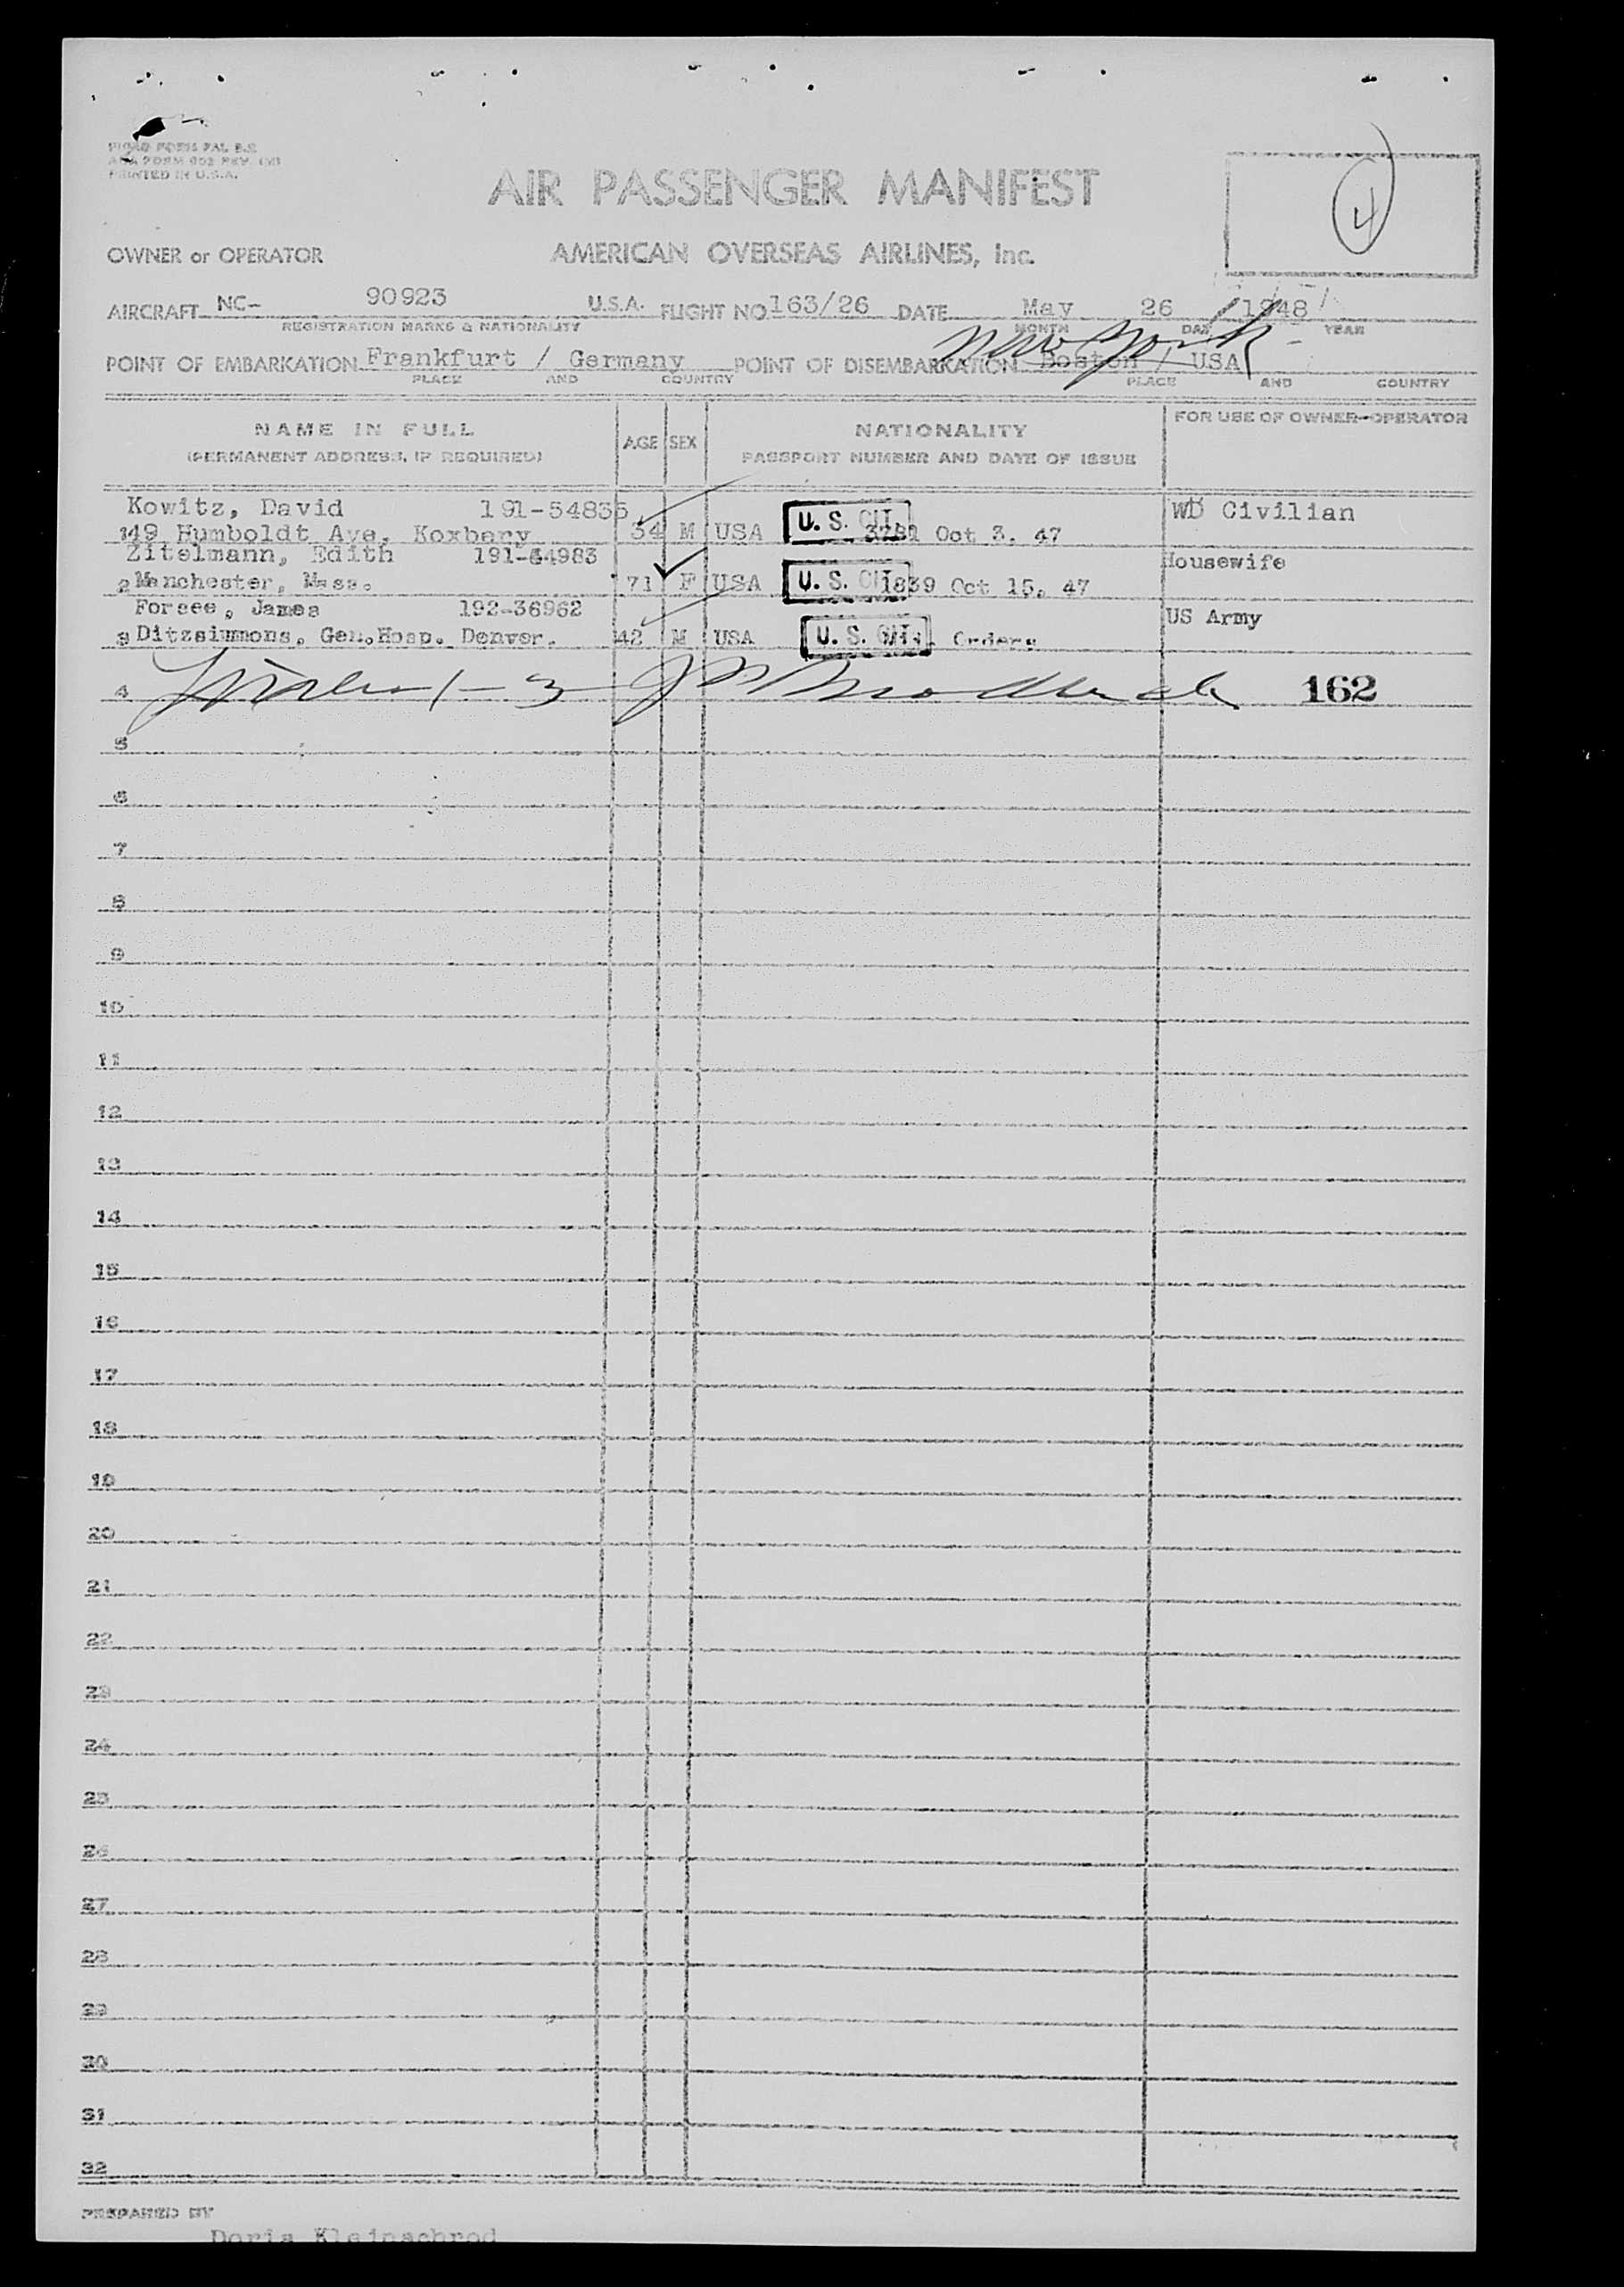 PRINTED IN U.S.A.
AIR PASSENGER MANIFEST
4
OWNER or OPERATOR AMERICAN OVERSEAS AIRLINES, Inc.
AIRCRAFT NC- 90923 U.S.A. FLIGHT NO 163/26 DATE May 26 1948
REGISTRATION MARKS & NATIONALITY MONTH DAY YEAR
New York
POINT OF EMBARKATION Frankfurt / Germany POINT OF DISEMBARKATION Boston / USA
PLACE AND COUNTRY PLACE AND COUNTRY
NAME IN FULL AGE SEX NATIONALITY FOR USE OF OWNER-OPERATOR
(PERMANENT ADDRESS, IF REQUIRED) PASSPORT NUMBER AND DATE OF ISSUE
Kowitz, David 191-54835 WD Civilian
1 149 Humboldt Ave, Koxbery 34 M USA U. S. CIT. Oct 3. 47
Zitelmann, Edith 191-54983 Housewife
2 Manchester, Mass. 71 F USA U. S. CIT. 1839 Oct 15. 47
Forsee, James 192-36962 US Army
3 Ditzsimmons. Gen.Hosp. Denver. 42 M USA U. S. CIT. Orders
4 1-3 162
5
6
7
8
9
10
11
12
13
14
15
16
17
18
19
20
21
22
23
24
25
26
27
28
29
30
31
32
PREPARED BY
Doris Kleinschrod